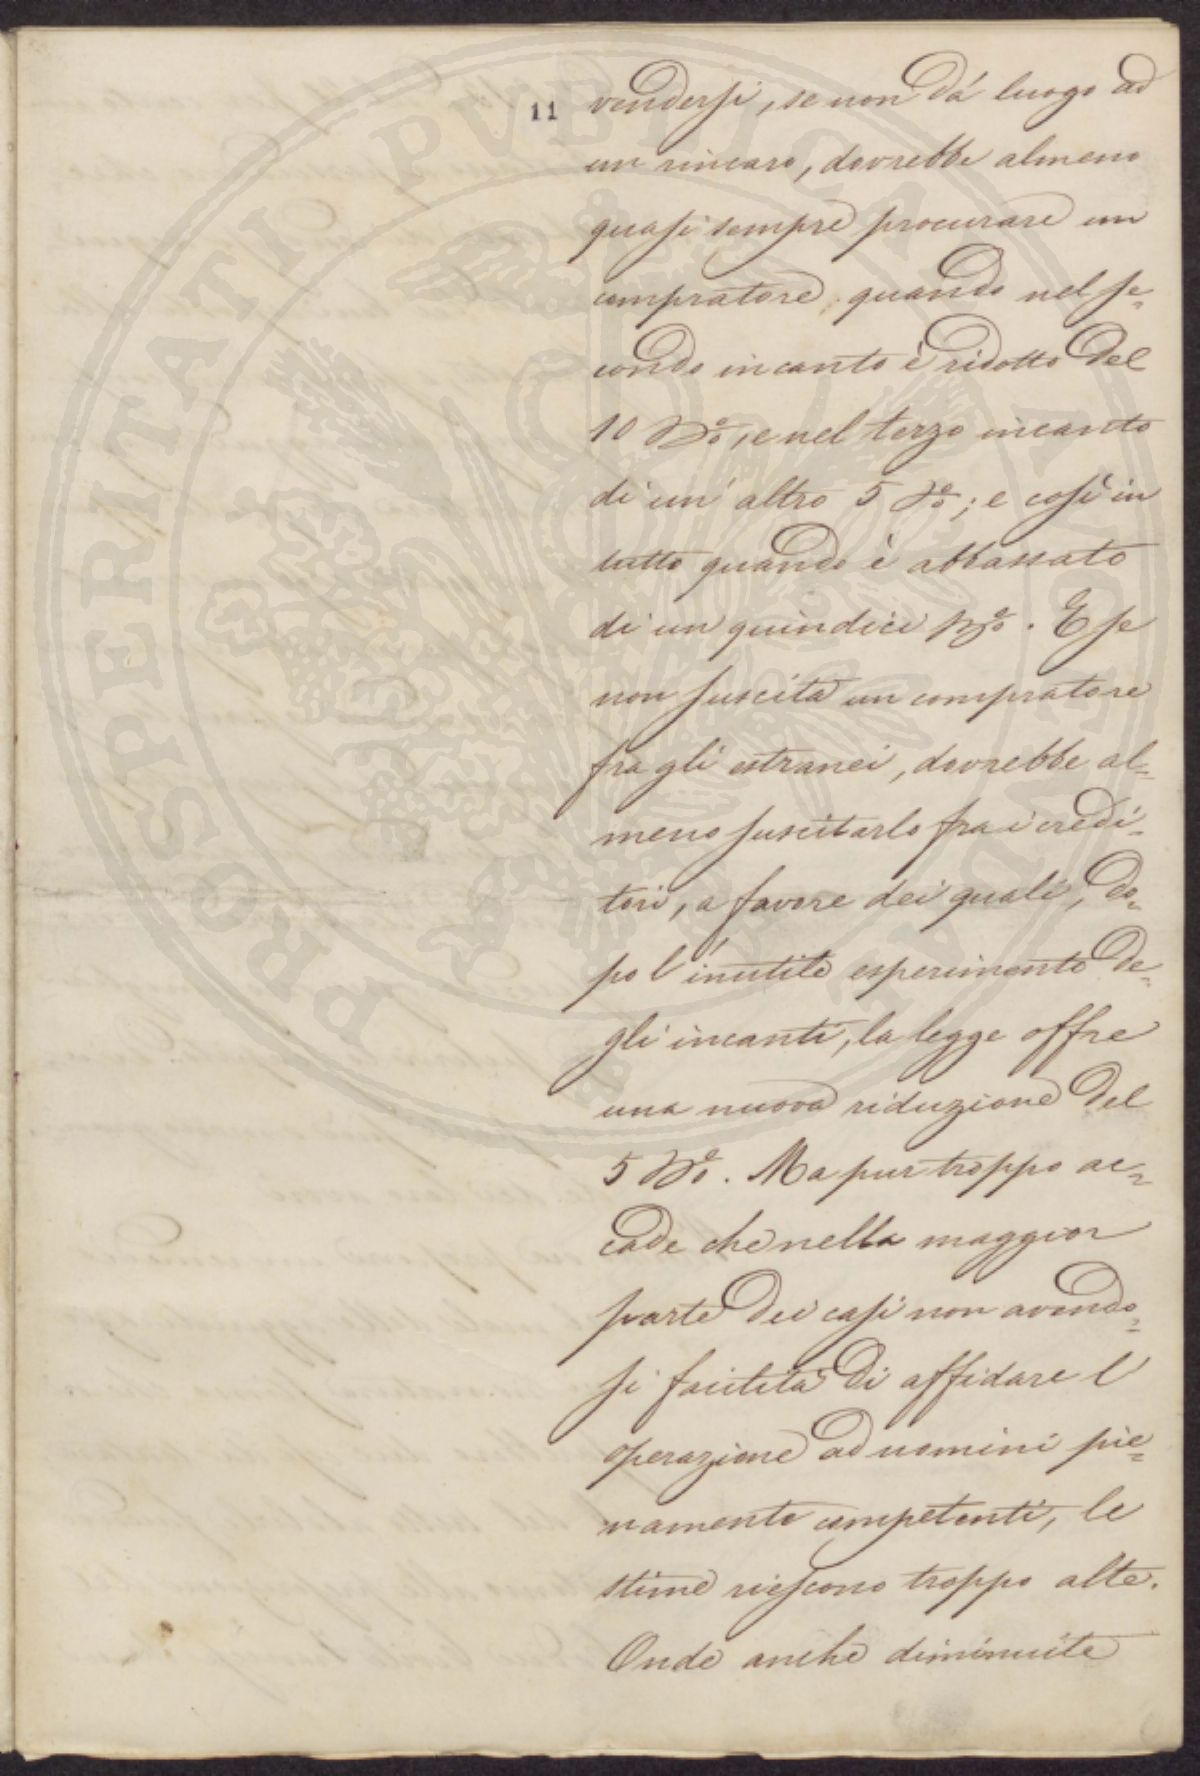 11
vendersi, se non dà luogo ad
un rincaro, dovrebbe almeno
quasi sempre procurare un
compratore, quando nel se=
condo incanto è ridotto del
10 %, e nel terzo incanto
di un' altro 5 %; e così in
tutto quando è abbassato
di un quindici %. E se
non suscita un compratore
fra gli estranei, dovrebbe al=
meno suscitarlo fra i credi=
tori, a favore dei quali, do=
po l'inutile esperimento de=
gli incanti, la legge offre
una nuova riduzione del
5 %. Ma pur troppo ac=
cade che nella maggior
parte dei casi non avendo=
si facilità di affidare l'
operazione ad uomini pie=
namente competenti, le
stime riescono troppo alte.
Onde anche diminuite
PROSPERITATI PVBLICAE